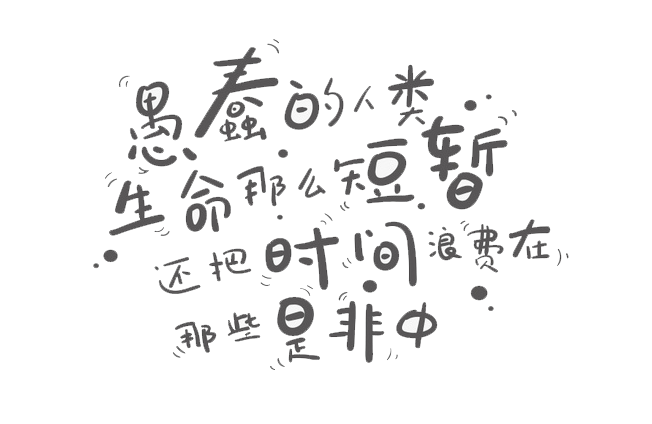 愚蠢的人类
生命那么短暂
还把时间浪费在
那些是非中